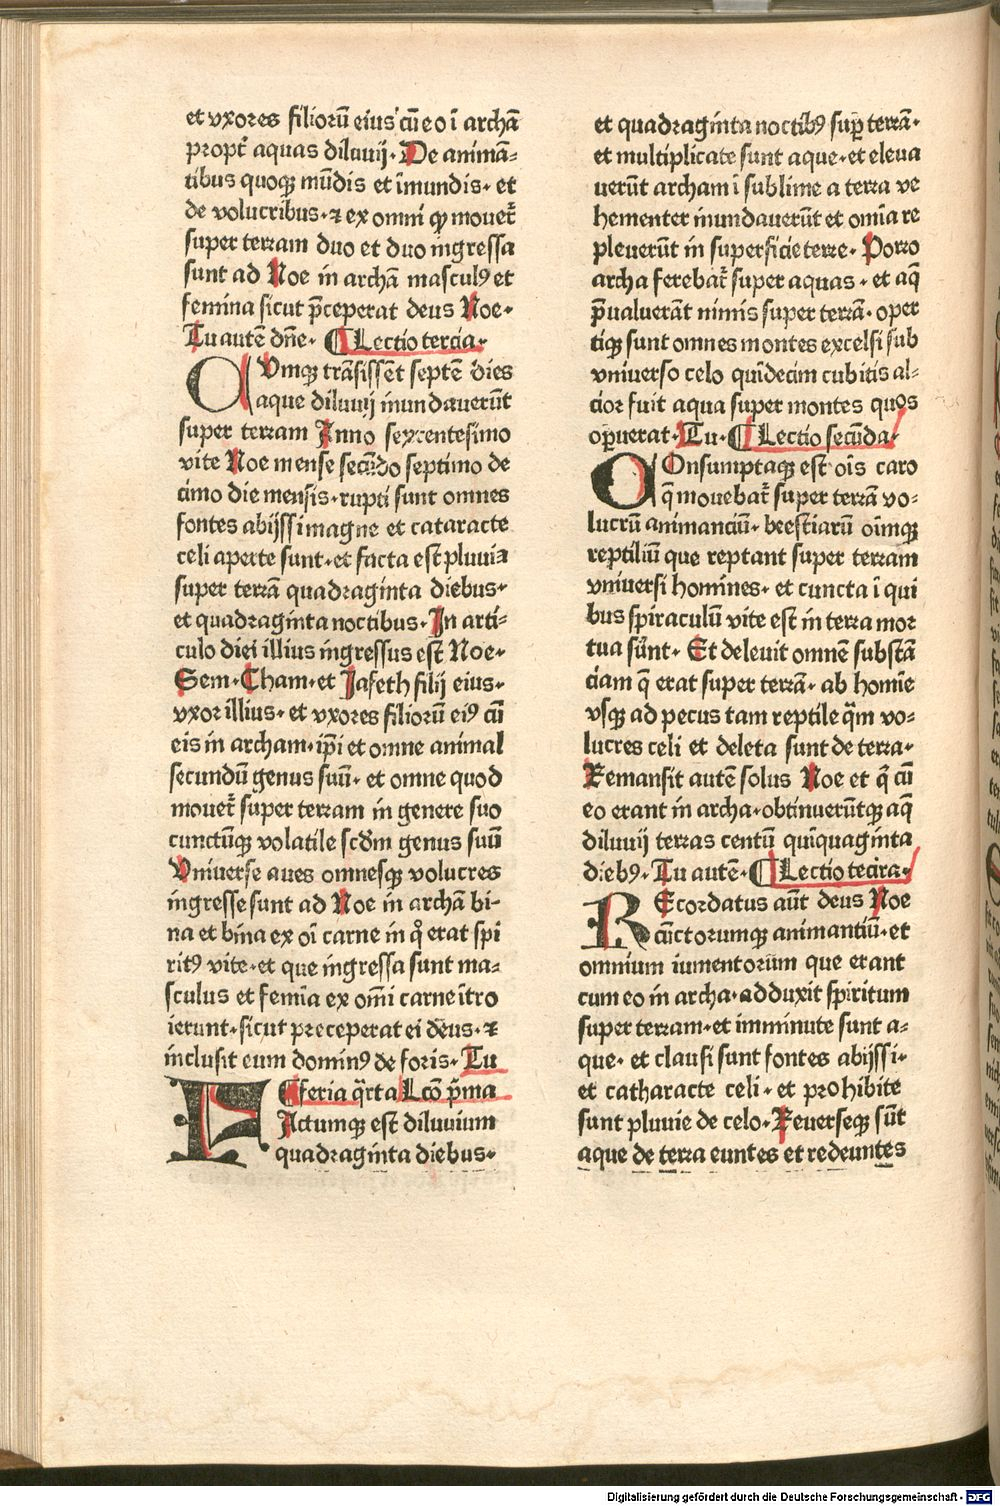 et vxores filioꝝ eius cū eo ī archā
propt̄ aquas diluuij. De animā⸗
tibus quoqꝫ mūdis et īmundis. et
de volucribus. ⁊ ex omni qd̄ mouet̄
super terram duo et duo ingressa
sunt ad Noe in archā masculꝰ et
femina sicut p̄ceperat deus Noe.
Tu autē dn̄e. ¶ Lectio tercia.
CVmqꝫ trāsissēt septē dies
aque diluuij inundauerūt
super terram Anno sexcentesimo
vite Noe mense secūdo septimo de
cimo die mensis. rupti sunt omnes
fontes abijssi magne et cataracte
celi aperte sunt. et facta est pluuia
super terrā quadraginta diebus.
et quadraginta noctibus. In arti⸗
culo diei illius ingressus est Noe.
Sem. Cham. et Jafeth filij eius.
vxor illius. et vxores filiorū eiꝰ cū
eis in archam. ip̄i et omne animal
secundū genus suū. et omne quod
mouet̄ super terram in genere suo
cunctūqꝫ volatile scd̄m genus suū
Vniuerse aues omnesqꝫ volucres
ingresse sunt ad Noe in archā bi⸗
na et bina ex oī carne in q̊ erat spi
ritꝰ vite. et que ingressa sunt ma⸗
sculus et femīa ex omī carne ītro
ierunt. sicut preceperat ei deus. ⁊
inclusit eum dominꝰ de foris. Tu
¶ feria q̄rta Lc̄o p̄ma
FActumqꝫ est diluuium
quadraginta diebus.
et quadraginta noctibꝰ suꝑ terrā.
et multiplicate sunt aque. et eleua
uerūt archam ī sublime a terra ve
hementer inundauerūt et omīa re
pleuerūt in superficie terre. Porro
archa ferebat̄ super aquas. et aq̄
p̄ualuerāt nimis super terrā. oper
tiqꝫ sunt omnes montes excelsi sub
vniuerso celo quīdecim cubitis al⸗
cior fuit aqua super montes quos
oꝑuerat. Tu. ¶ Lectio secūda.
COnsumptaqꝫ est oīs caro
q̄ mouebat̄ super terrā vo⸗
lucrū animanciū. beestiarū oīmqꝫ
reptiliū que reptant super terram
vniuersi homines. et cuncta ī qui
bus spiraculū vite est in terra mor
tua sūnt. Et deleuit omnē substā
ciam q̄ erat super terrā. ab homīe
vsqꝫ ad pecus tam reptile q̄m vo⸗
lucres celi et deleta sunt de terra.
Remansit autē solus Noe et q̄ cū
eo erant in archa. obtinuerūtqꝫ aq̄
diluuij terras centū quīquaginta
diebꝰ. Tu autē. ¶ Lectio tecira.
REcordatus aūt deus Noe
cūctorumqꝫ animantiū. et
omnium iumentorum que erant
cum eo in archa. adduxit spiritum
super terram. et imminute sunt a⸗
que. et clausi sunt fontes abijssi.
et catharacte celi. et prohibite
sunt pluuie de celo. Reuerseqꝫ sūt
aque de terra euntes et redeuntes
Digitalisierung gefördert durch die Deutsche Forschungsgemeinschaft - DFG